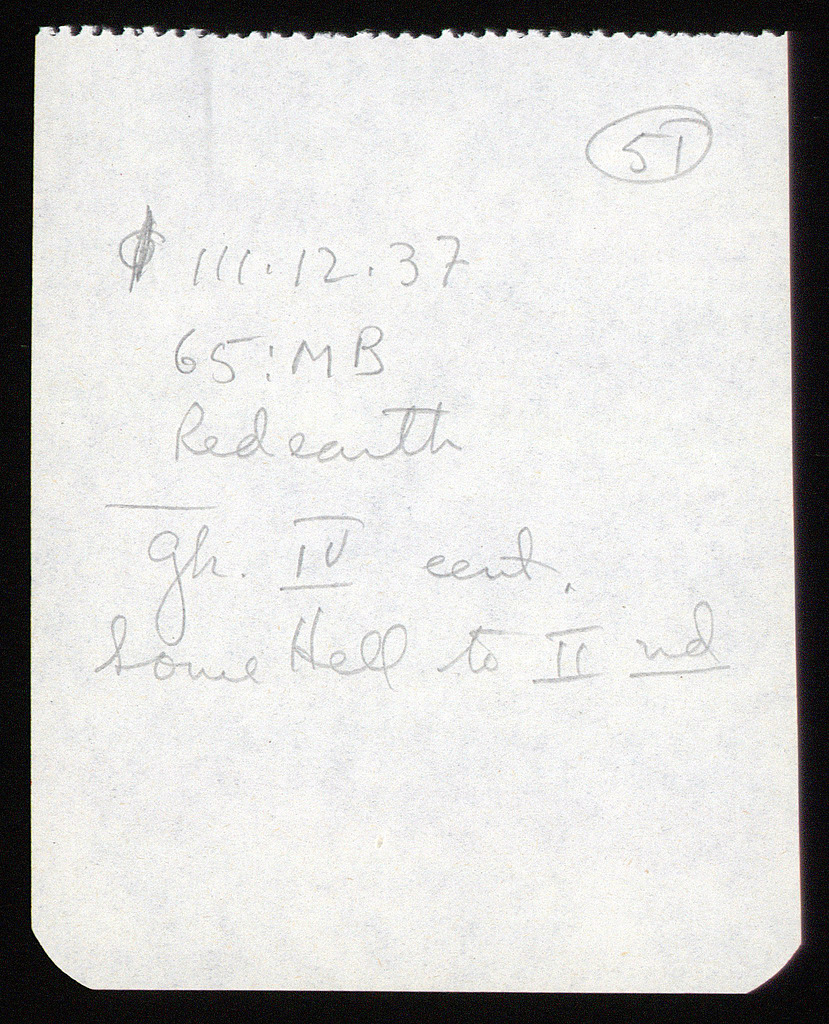 51
¢ 111.12.37
65:MB
Red earth
Gk. IV cent.
Some Hell to II nd